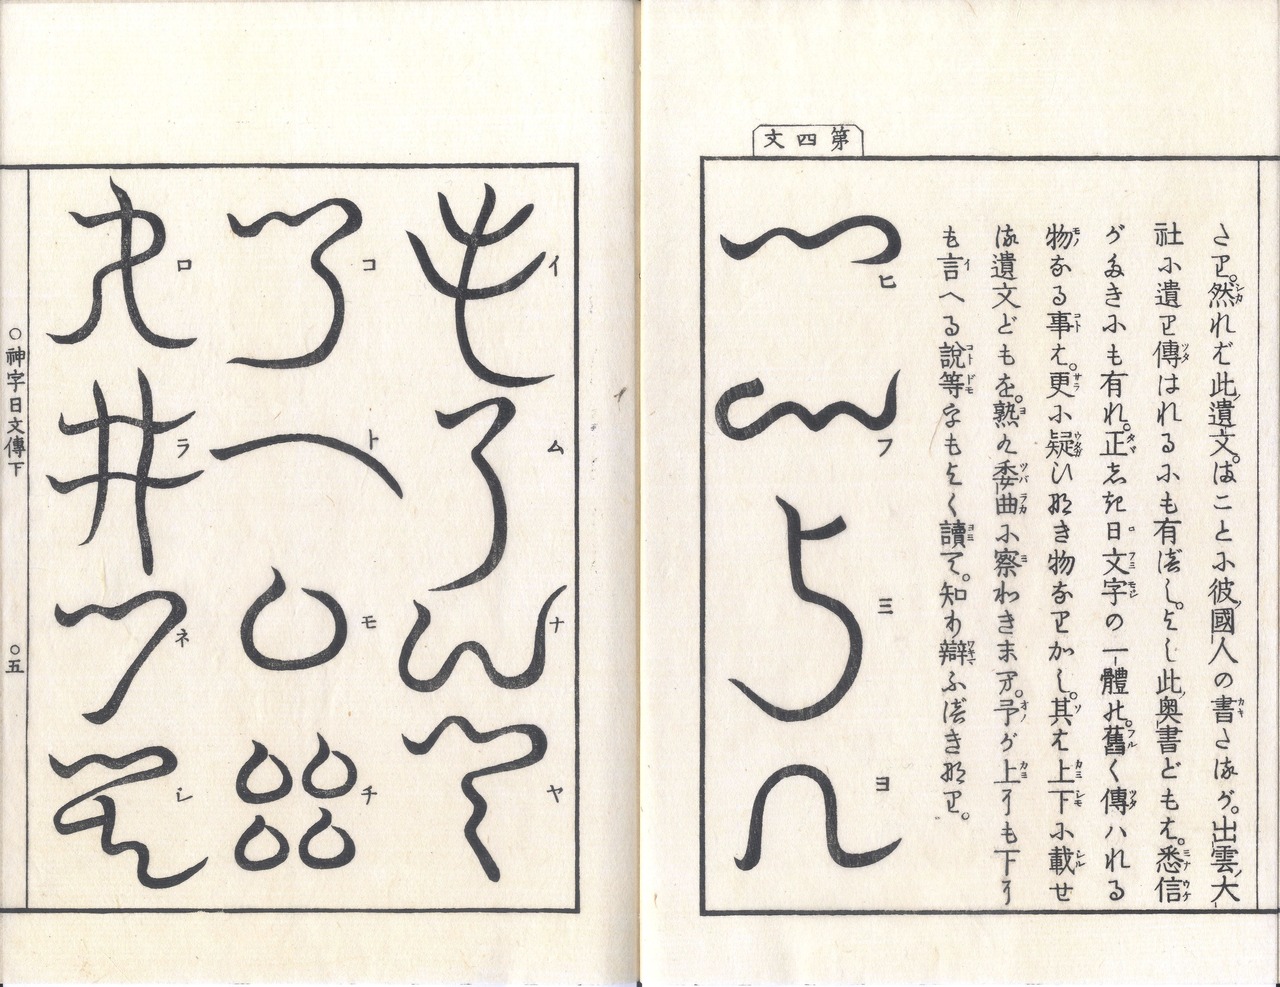 第四文
さり。然れど此遺文。まことに彼國人の書さまが。出雲大
社に遺り傳はれるにも有べし。よし此奥書どもは。悉信
がたきにも有れ。正しき日文字の一體の。舊く傳ハれる
物なる事は。更に疑ひなき物なりかし。其は上下に載せ
遺文どもを。熟く委曲に察わきまへ。予が上にも下に
も言へる説等をもよく讀て。知り辯ふべきなり。
ヒ
フ
ミ
ヨ
イ
ム
ナ
ヤ
コ
ト
モ
チ
ロ
ラ
ネ
シ
○神字日文傳下
○五